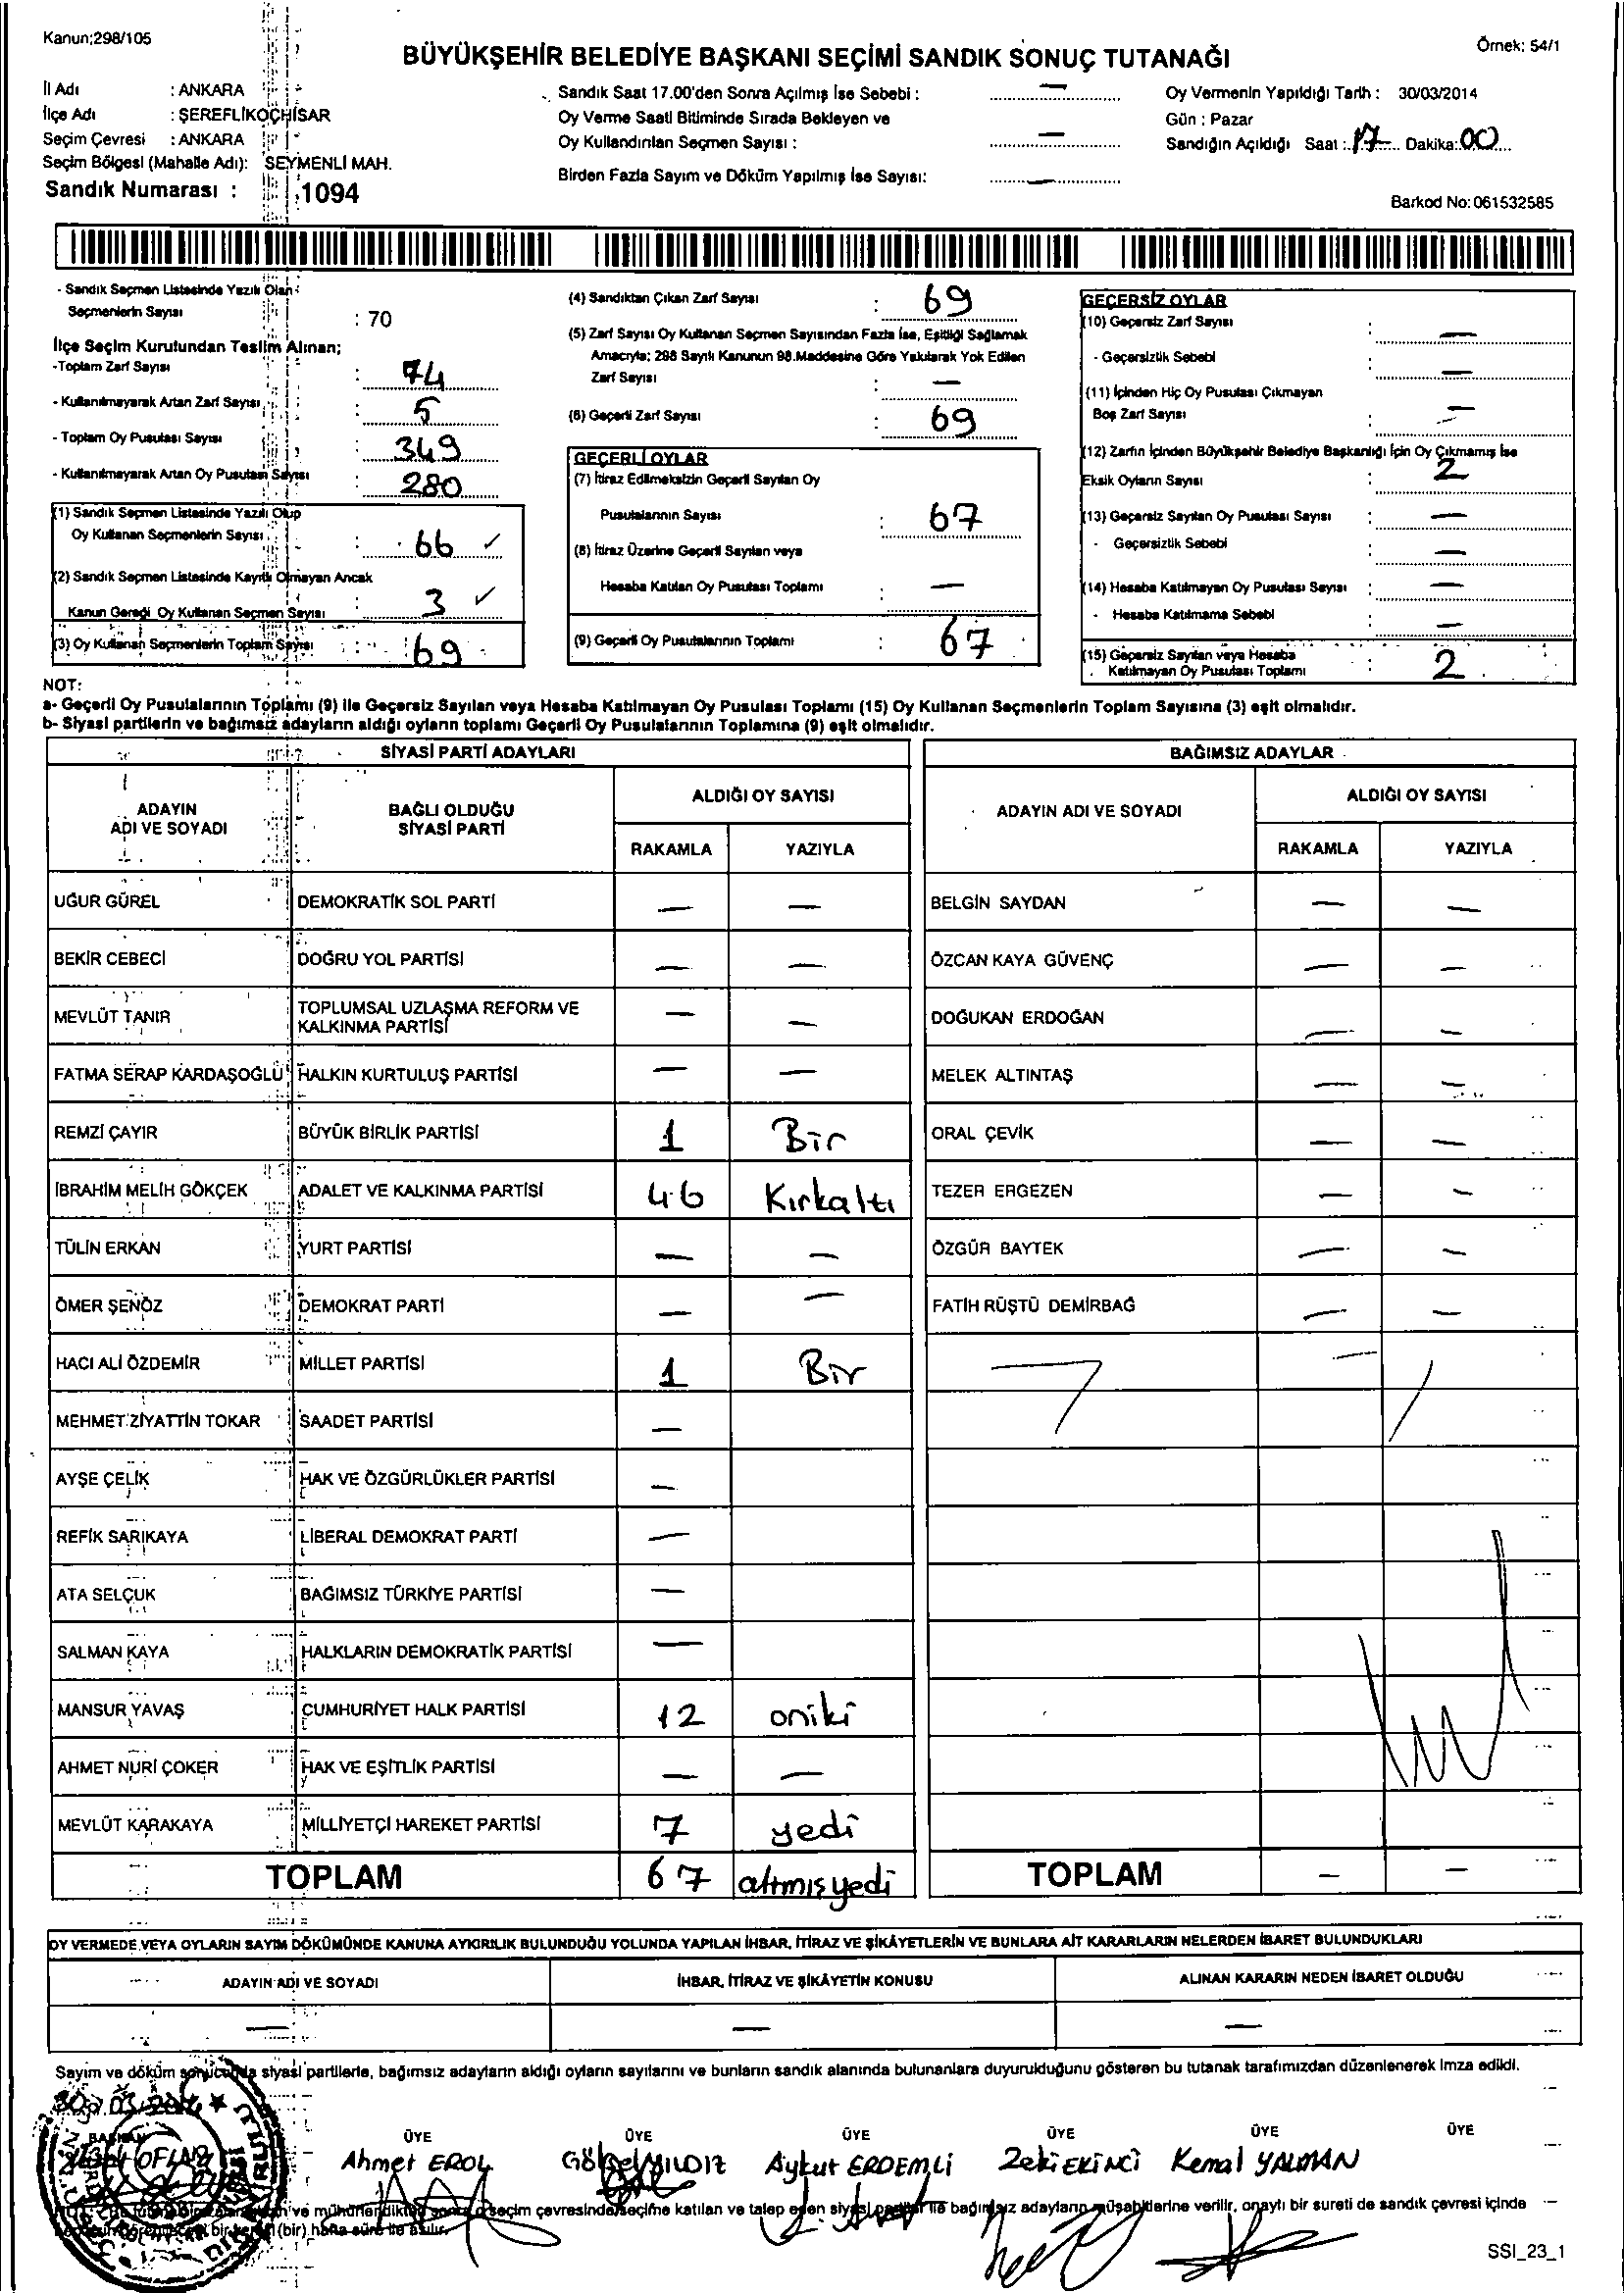 Kanun;298/105
Örnek: 54/1
BÜYÜKŞEHİR BELEDİYE BAŞKANI SEÇİMİ SANDIK SONUÇ TUTANAĞI
İl Adı : ANKARA
İlçe Adı : ŞEREFLİKOÇHİSAR
Seçim Çevresi : ANKARA
Seçim Bölgesi (Mahalle Adı): SEYMENLİ MAH.
Sandık Numarası : 1094
Sandık Saat 17.00'den Sonra Açılmış İse Sebebi : —
Oy Verme Saati Bitiminde Sırada Bekleyen ve
Oy Kullandırılan Seçmen Sayısı : —
Birden Fazla Sayım ve Döküm Yapılmış İse Sayısı: —
Oy Vermenin Yapıldığı Tarih : 30/03/2014
Gün : Pazar
Sandığın Açıldığı Saat : 17 Dakika: 00
Barkod No: 061532585
- Sandık Seçmen Listesinde Yazılı Olan
Seçmenlerin Sayısı : 70
İlçe Seçim Kurulundan Teslim Alınan;
-Toplam Zarf Sayısı : 74
- Kullanılmayarak Artan Zarf Sayısı : 5
- Toplam Oy Pusulası Sayısı : 349
- Kullanılmayarak Artan Oy Pusulası Sayısı : 280
(1) Sandık Seçmen Listesinde Yazılı Olup
Oy Kullanan Seçmenlerin Sayısı : 66 ✓
(2) Sandık Seçmen Listesinde Kayıtlı Olmayan Ancak
Kanun Gereği Oy Kullanan Seçmen Sayısı : 3 ✓
(3) Oy Kullanan Seçmenlerin Toplam Sayısı : 69
(4) Sandıktan Çıkan Zarf Sayısı : 69
(5) Zarf Sayısı Oy Kullanan Seçmen Sayısından Fazla İse, Eşitliği Sağlamak
Amacıyla; 298 Sayılı Kanunun 98.Maddesine Göre Yakılarak Yok Edilen
Zarf Sayısı : —
(6) Geçerli Zarf Sayısı : 69
GEÇERLİ OYLAR
(7) İtiraz Edilmeksizin Geçerli Sayılan Oy
Pusulalarının Sayısı : 67
(8) İtiraz Üzerine Geçerli Sayılan veya
Hesaba Katılan Oy Pusulası Toplamı : —
(9) Geçerli Oy Pusulalarının Toplamı : 67
GEÇERSİZ OYLAR
(10) Geçersiz Zarf Sayısı : —
- Geçersizlik Sebebi : —
(11) İçinden Hiç Oy Pusulası Çıkmayan
Boş Zarf Sayısı : —
(12) Zarfın İçinden Büyükşehir Belediye Başkanlığı İçin Oy Çıkmamış İse
Eksik Oyların Sayısı : 2
(13) Geçersiz Sayılan Oy Pusulası Sayısı : —
- Geçersizlik Sebebi : —
(14) Hesaba Katılmayan Oy Pusulası Sayısı : —
- Hesaba Katılmama Sebebi : —
(15) Geçersiz Sayılan veya Hesaba
Katılmayan Oy Pusulası Toplamı : 2
NOT:
a- Geçerli Oy Pusulalarının Toplamı (9) ile Geçersiz Sayılan veya Hesaba Katılmayan Oy Pusulası Toplamı (15) Oy Kullanan Seçmenlerin Toplam Sayısına (3) eşit olmalıdır.
b- Siyasi partilerin ve bağımsız adayların aldığı oyların toplamı Geçerli Oy Pusulalarının Toplamına (9) eşit olmalıdır.
SİYASİ PARTİ ADAYLARI
ADAYIN ADI VE SOYADI BAĞLI OLDUĞU SİYASİ PARTİ ALDIĞI OY SAYISI
RAKAMLA YAZIYLA
UĞUR GÜREL DEMOKRATİK SOL PARTİ — —
BEKİR CEBECİ DOĞRU YOL PARTİSİ — —
MEVLÜT TANIR TOPLUMSAL UZLAŞMA REFORM VE KALKINMA PARTİSİ — —
FATMA SERAP KARDAŞOĞLU HALKIN KURTULUŞ PARTİSİ — —
REMZİ ÇAYIR BÜYÜK BİRLİK PARTİSİ 1 Bir
İBRAHİM MELİH GÖKÇEK ADALET VE KALKINMA PARTİSİ 46 Kırkaltı
TÜLİN ERKAN YURT PARTİSİ — —
ÖMER ŞENÖZ DEMOKRAT PARTİ — —
HACI ALİ ÖZDEMİR MİLLET PARTİSİ 1 Bir
MEHMET ZİYATTİN TOKAR SAADET PARTİSİ —
AYŞE ÇELİK HAK VE ÖZGÜRLÜKLER PARTİSİ —
REFİK SARIKAYA LİBERAL DEMOKRAT PARTİ —
ATA SELÇUK BAĞIMSIZ TÜRKİYE PARTİSİ —
SALMAN KAYA HALKLARIN DEMOKRATİK PARTİSİ —
MANSUR YAVAŞ CUMHURİYET HALK PARTİSİ 12 oniki
AHMET NURİ ÇOKER HAK VE EŞİTLİK PARTİSİ — —
MEVLÜT KARAKAYA MİLLİYETÇİ HAREKET PARTİSİ 7 yedi
TOPLAM 67 altmışyedi
BAĞIMSIZ ADAYLAR
ADAYIN ADI VE SOYADI ALDIĞI OY SAYISI
RAKAMLA YAZIYLA
BELGİN SAYDAN — —
ÖZCAN KAYA GÜVENÇ — —
DOĞUKAN ERDOĞAN — —
MELEK ALTINTAŞ — —
ORAL ÇEVİK — —
TEZER ERGEZEN — —
ÖZGÜR BAYTEK — —
FATİH RÜŞTÜ DEMİRBAĞ — —
TOPLAM — —
OY VERMEDE VEYA OYLARIN SAYIM DÖKÜMÜNDE KANUNA AYKIRILIK BULUNDUĞU YOLUNDA YAPILAN İHBAR, İTİRAZ VE ŞİKÂYETLERİN VE BUNLARA AİT KARARLARIN NELERDEN İBARET BULUNDUKLARI
ADAYIN ADI VE SOYADI İHBAR, İTİRAZ VE ŞİKÂYETİN KONUSU ALINAN KARARIN NEDEN İBARET OLDUĞU
— — —
Sayım ve döküm sonucunda siyasi partilerle, bağımsız adayların aldığı oyların sayılarını ve bunların sandık alanında bulunanlara duyurulduğunu gösteren bu tutanak tarafımızdan düzenlenerek imza edildi.
BAŞKAN ÜYE ÜYE ÜYE ÜYE ÜYE ÜYE
Ahmet EROL Göksel YILDIZ Aykut ERDEMLİ Zeki EKİNCİ Kemal YALMAN
ve mühürlendikten sonra o seçim çevresinde seçime katılan ve talep eden siyasi partiler ile bağımsız adayların müşahitlerine verilir, onaylı bir sureti de sandık çevresi içinde
bir yere (bir) hafta süre ile asılır.
SSI_23_1